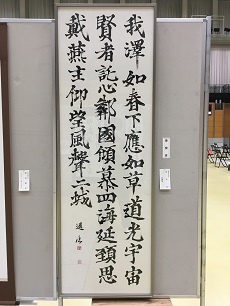 我澤如春下應如草道光宇宙
賢者託心鄰國傾慕四海延頸思
戴燕主仰望風聲二城